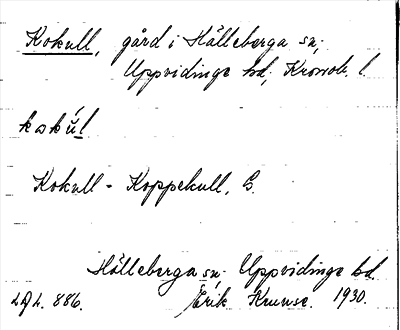 Kokull, gård i Hälleberga sn,
Uppvidinge hd, Kronob. l.
kokúl
Kokull - Koppekull, G.
Hälleberga sn. Uppvidinge hd.
886. Erik Kruuse. 1930.